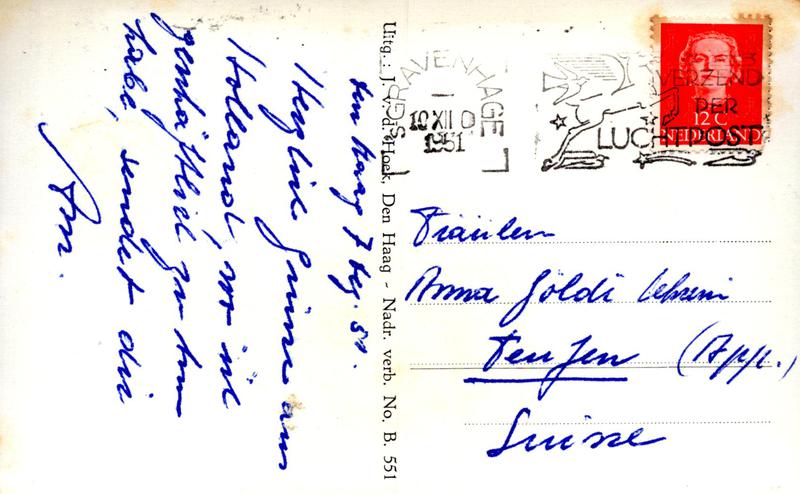 den Haag 7 Dez. 51.
Herzliche Grüsse aus
Holland, wo ich
geschäftlich zu tun
habe, sendet dir
Uitg.: J. v. d. Hoek, Den Haag - Nadr. verb. No. B. 551
'S GRAVENHAGE
10 XII 0
1951
VERZEND
PER
LUCHTPOST
12 C
NEDERLAND
Fräulein
Anna Göldi Lehrerin
Teufen (App.)
Suisse